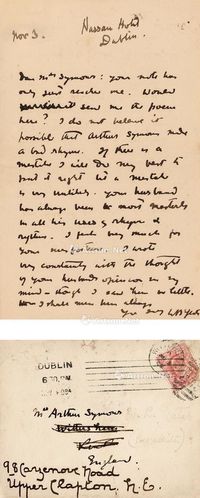 Nassau Hotel
Dublin.
Nov 3.
Dear Mrs Symons: your note has
only just reached me. Would
send me the poem
here? I do not believe it
possible that Arthur Symons made
a bad rhyme. If there is a
mistake I will do my best to
put it right but a mistake
is very unlikely. Your husband
has always been the most masterly
in all his uses of rhyme &
rhythm. I feel very much for
your misfortune. I wrote
very constantly with the thought
of your husband's opinion in my
mind — though I saw him so little.
I shall miss him always.
Yrs sny WB Yeats
DUBLIN
6 30 PM
Mrs Arthur Symons
England.
98 Cazenove Road
Upper Clapton, N.E.